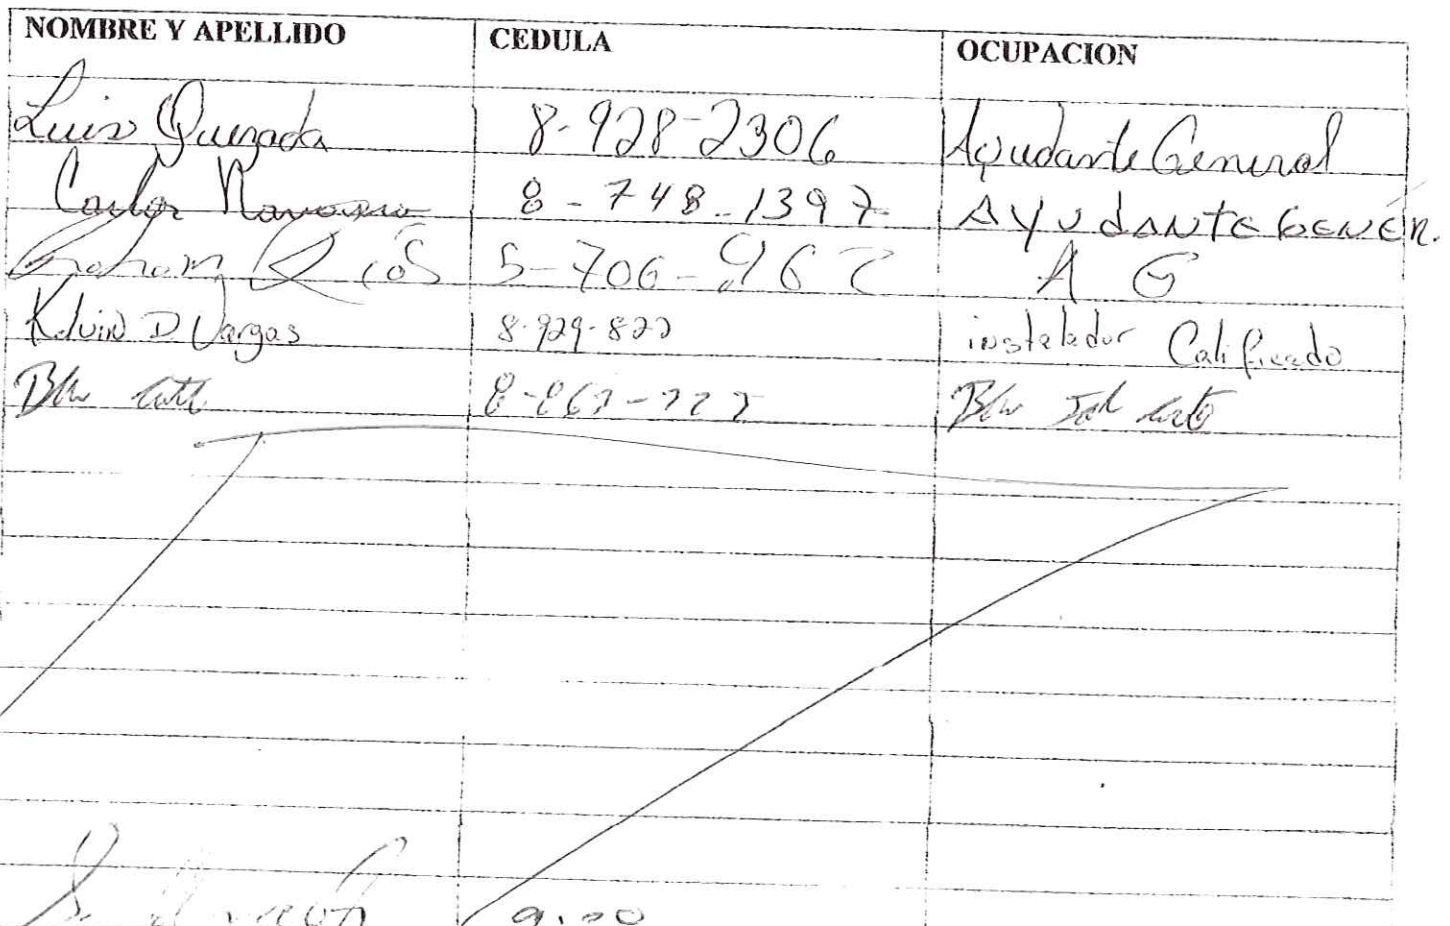 NOMBRE Y APELLIDO CEDULA OCUPACION
Luis Quezada 8-928-2306 Ayudante General
Carlos Navarro 8-748-1397 AYUDANTE GENER.
Graham Ríos 5-706-962 A G
Kelvin D Vargas 8-929-822 instalador Calificado
9:00